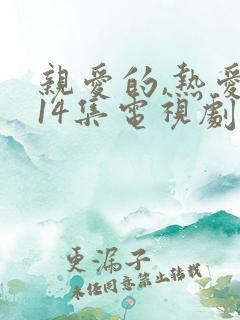 親愛的,熱愛
14集電視劇
更漏子
未經同意禁止轉載